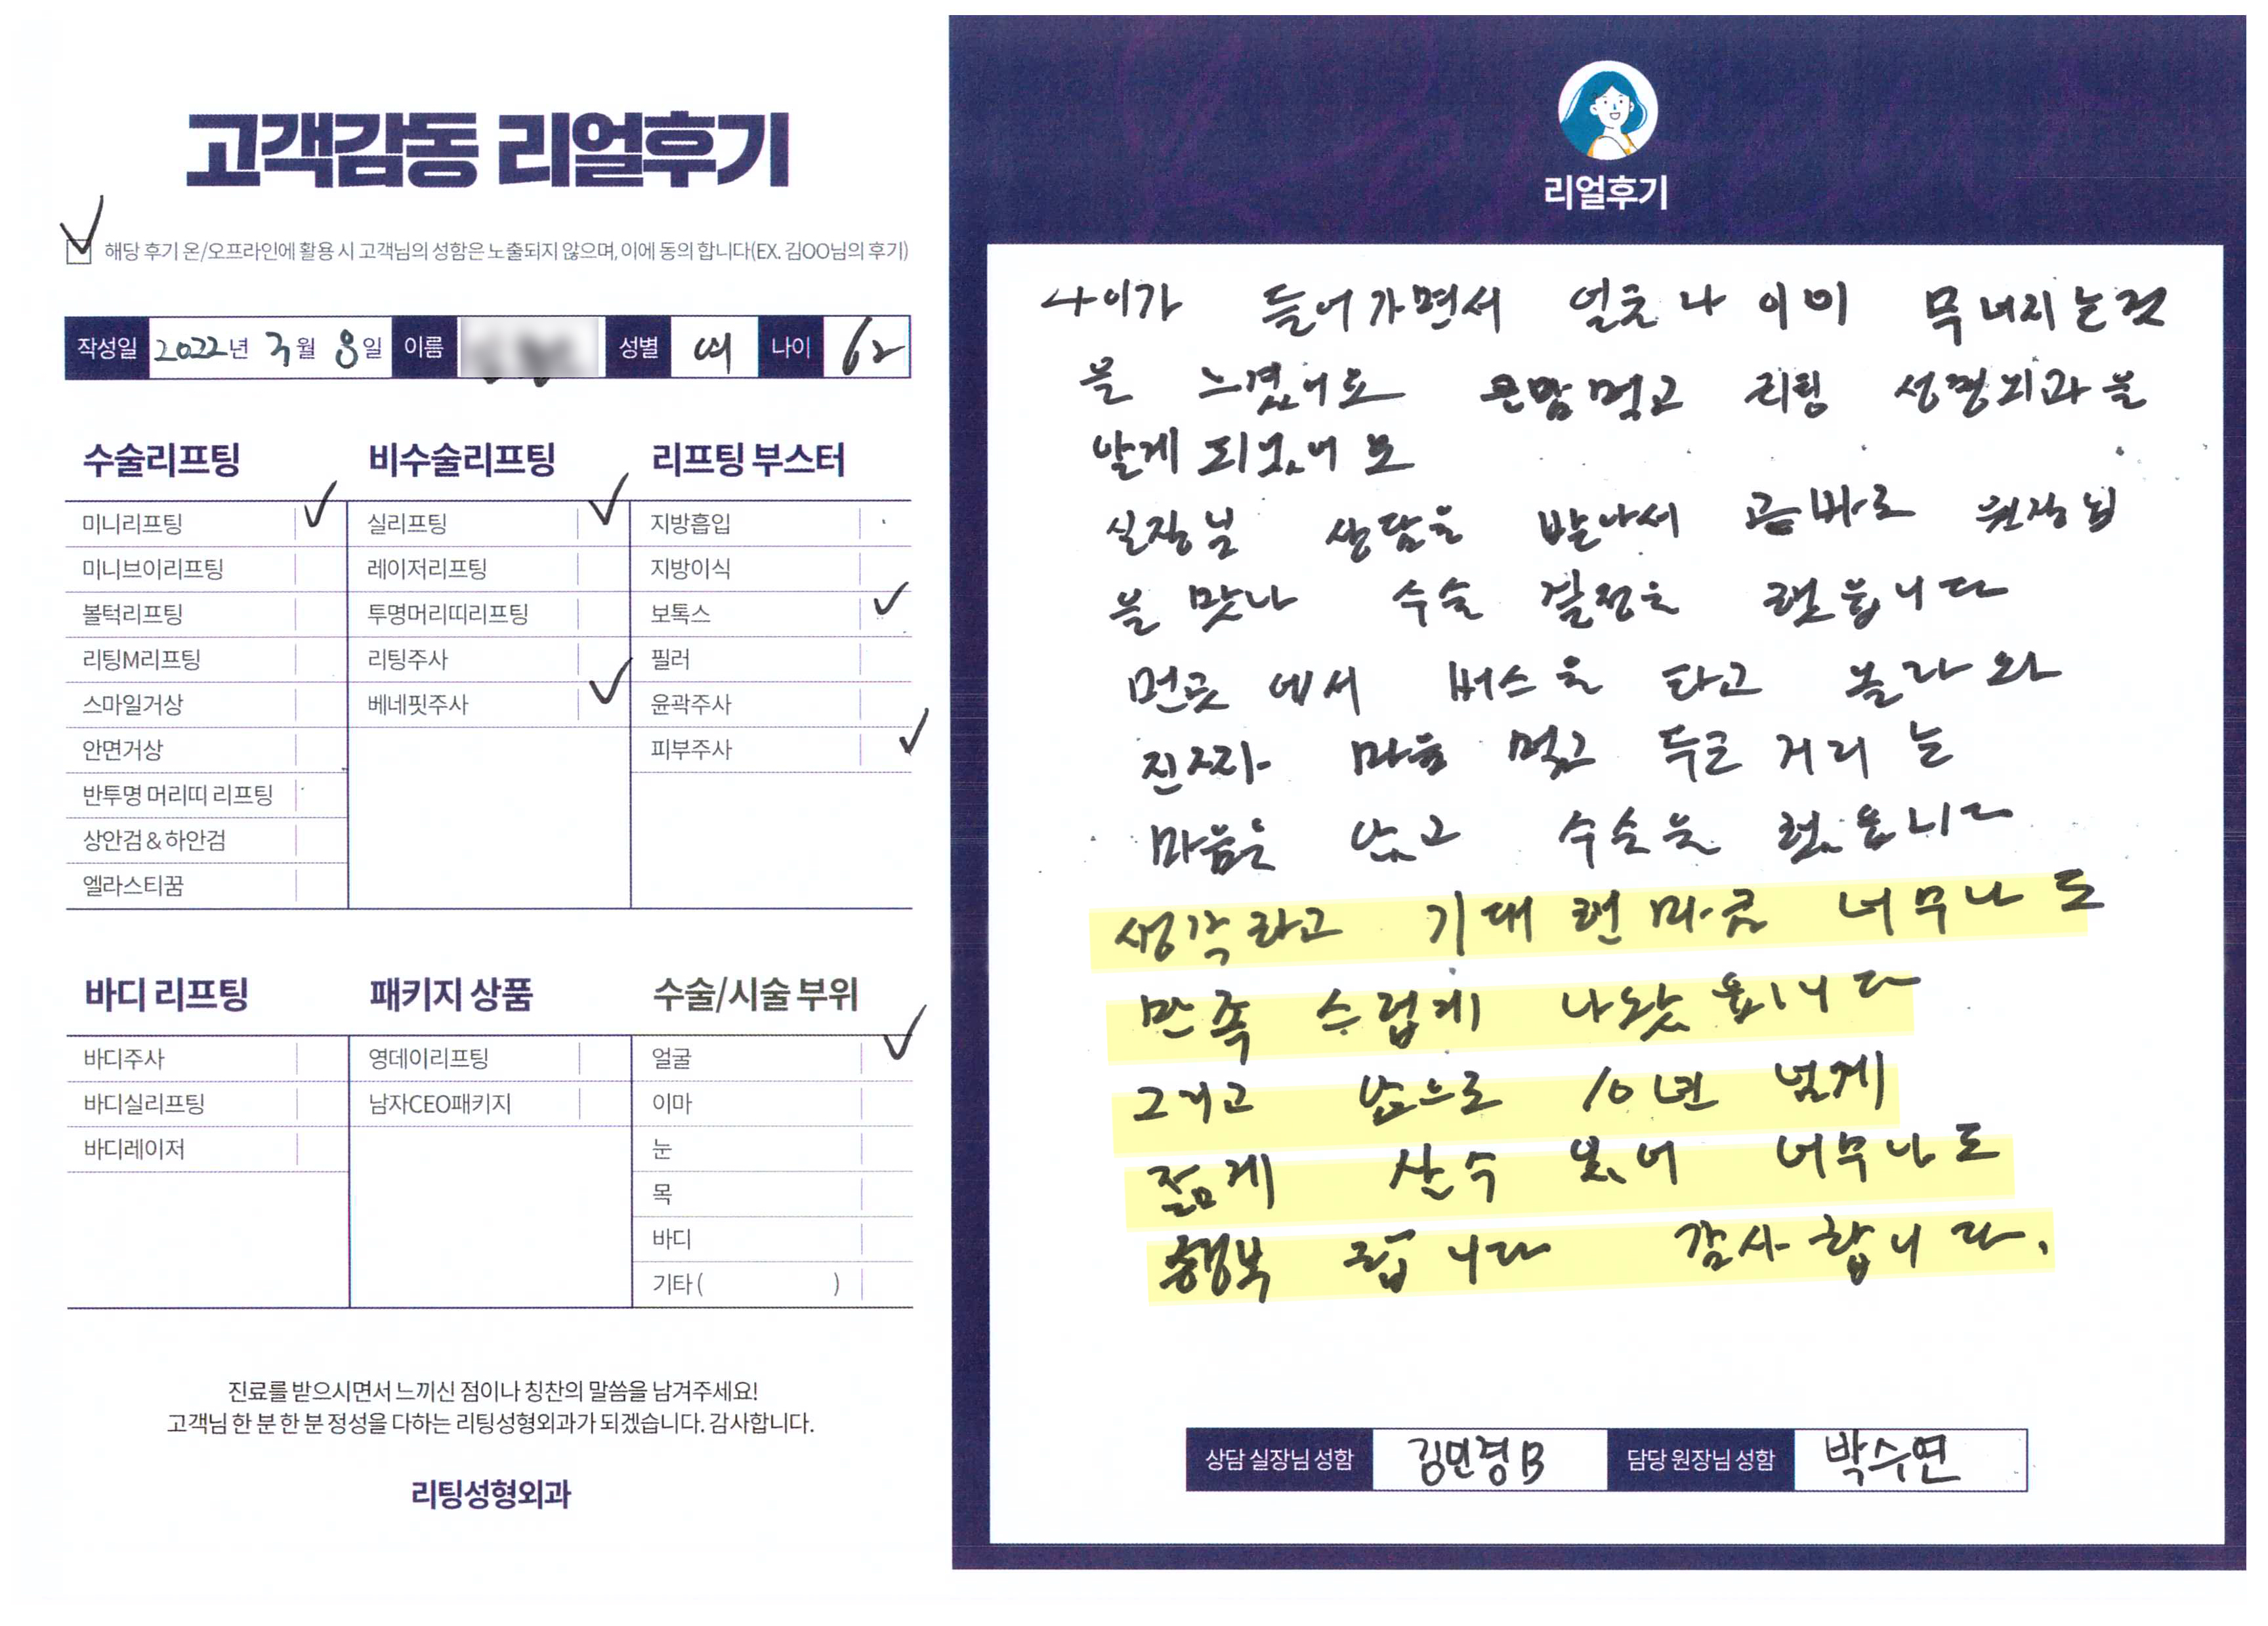 고객감동 리얼후기
해당 후기 온/오프라인에 활용 시 고객님의 성함은 노출되지 않으며, 이에 동의 합니다(EX. 김OO님의 후기)
작성일 2022년 3월 8일 이름 성별 여 나이 62
수술리프팅 비수술리프팅 리프팅 부스터
미니리프팅 실리프팅 지방흡입
미니브이리프팅 레이저리프팅 지방이식
볼턱리프팅 투명머리띠리프팅 보톡스
리팅M리프팅 리팅주사 필러
스마일거상 베네핏주사 윤곽주사
안면거상 피부주사
반투명 머리띠 리프팅
상안검&하안검
엘라스티꿈
바디 리프팅 패키지 상품 수술/시술 부위
바디주사 영데이리프팅 얼굴
바디실리프팅 남자CEO패키지 이마
바디레이저 눈
목
바디
기타 ( )
진료를 받으시면서 느끼신 점이나 칭찬의 말씀을 남겨주세요!
고객님 한 분 한 분 정성을 다하는 리팅성형외과가 되겠습니다. 감사합니다.
리팅성형외과
리얼후기
나이가 들어가면서 얼굴나이이 무너지는것
을 느꼈어요 큰맘먹고 리팅 성형외과을
알게 되었어요
실장님 상담을 받아서 곧바로 원장님
을 맛나 수술 결정을 했읍니다
먼곳에서 버스을 타고 올라와
진짜 마음 먹고 두근거리는
마음은 안고 수술을 했읍니다
생각하고 기대한마큼 너무나도
만족스럽게 나왔읍니다
그리고 앞으로 10년 넘게
젊게 살수 있어 너무나도
행복합니다 감사합니다.
상담 실장님 성함 김민경B 담당 원장님 성함 박수연